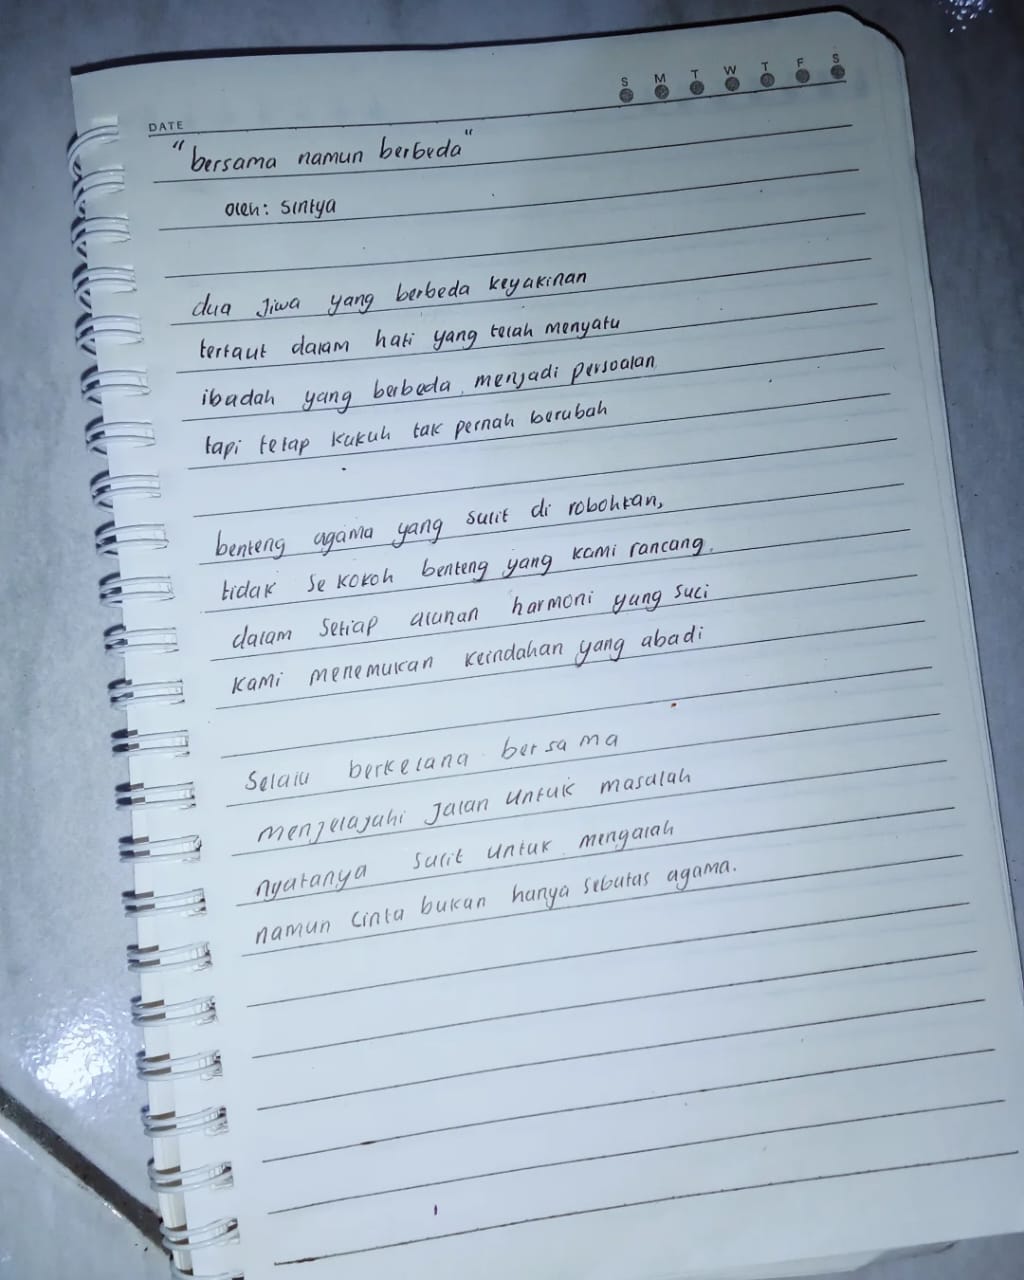 S M T W T F S
DATE
"bersama namun berbeda"
oleh: Sintya
dua Jiwa yang berbeda keyakinan
tertaut dalam hati yang telah menyatu
ibadah yang berbeda, menjadi persoalan
tapi tetap kukuh tak pernah berubah
benteng agama yang sulit di robohkan,
tidak se kokoh benteng yang kami rancang.
dalam setiap alunan harmoni yang suci
kami menemukan keindahan yang abadi
Selalu berkelana bersama
menjelajahi Jalan untuk masalah
nyatanya sulit untuk mengalah
namun cinta bukan hanya sebatas agama.